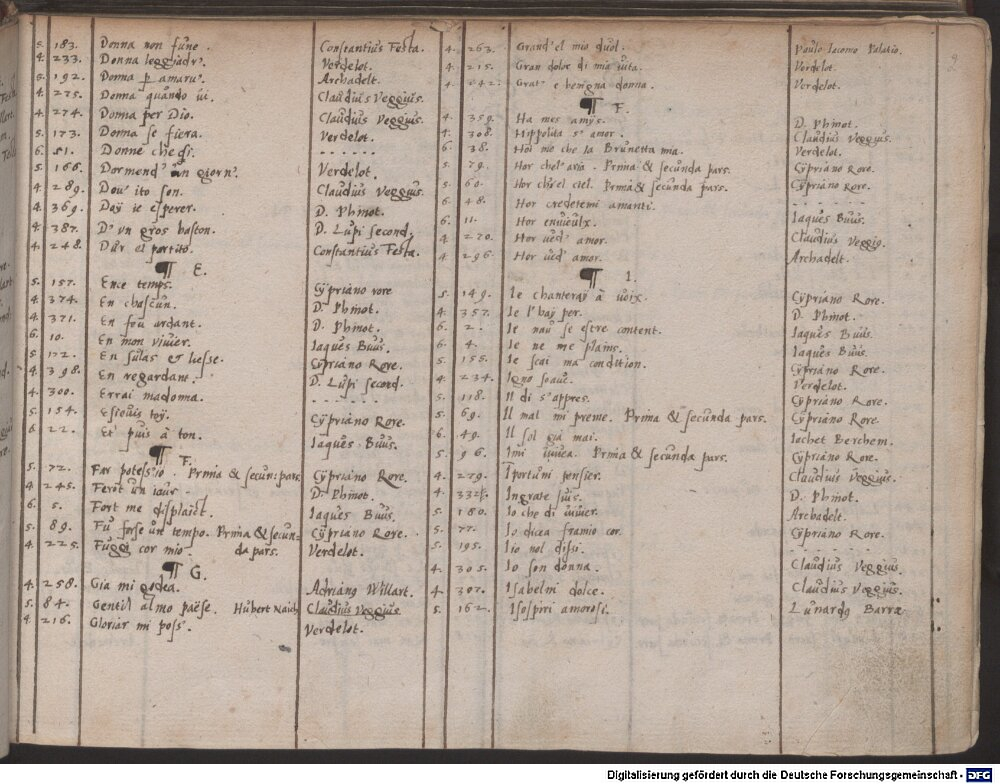 5. 183. Donna non fu ne. Constantius Festa.
4. 233. Donna leggiadr'. Verdelot.
5. 192. Donna p amaru'. Archadelt.
4. 275. Donna quando ui. Claudius Veggius.
4. 274. Donna per Dio. Claudius Veggius.
5. 173. Donna se fiera. Verdelot.
6. 51. Donne che si. - - - - - -
5. 166. Dormend' un giorn'. Verdelot.
4. 289. Dou' ito son. Claudius Veggius.
4. 369. Doy ie esperer. D. Phinot.
4. 387. D'un gros baston. D. Lupi second.
4. 248. Dur el partito. Constantius Festa.
¶ E.
5. 157. Ence temps. Cÿpriano rore
4. 374. En chascun. D. Phinot.
4. 371. En feu ardant. D. Phinot.
6. 10. En mon viuier. Iaques Buus.
5. 172. En sulas & liesse. Cÿpriano Rore.
4. 398. En regardant. D. Lupi second.
4. 300. Errai madonna. - - - - - -
5. 154. Esiouis toÿ. Cÿpriano Rore.
6. 22. Et puis à ton. Iaques Buus.
¶ F.
5. 72. Far potess'io. Prima & secun: pars. Cÿpriano Rore.
4. 245. Feroit un iour. D. Phinot.
6. 5. Fort me displaict. Iaques Buus.
5. 89. Fu forse un tempo. Prima & secun-
da pars. Cÿpriano Rore.
4. 225. Fuggi cor mio. Verdelot.
¶ G.
4. 258. Gia mi godea. Adriano Willart.
5. 84. Gentil almo paëse. Hubert Naich Claudius Veggius.
4. 216. Gloriar mi poss'. Verdelot.
4. 263. Grand' el mio duol. Paulo Iacomo Palatio.
4. 215. Gran dolor di mia uita. Verdelot.
4. 242. Grat' e benigna donna. Verdelot.
¶
4. 359. Ha mes amys. D. Phinot.
4. 308. Hippolita s' amor. Claudius Veggius.
6. 38. Hoi me che la Brunetta mia. Verdelot.
5. 79. Hor chel' aria. Prima & secunda pars. Cÿpriano Rore.
5. 60. Hor ch'el ciel. Prima & secunda pars. Cÿpriano Rore.
6. 48. Hor credetemi amanti. - - - - - -
6. 11. Hor enuieulx. Iaques Buus.
4. 270. Hor ued' amor. Claudius Veggio.
4. 296. Hor ued' amor. Archadelt.
¶ I.
5. 149. Ie chanteray à uoix. Cÿpriano Rore.
4. 357. Ie l'haÿ per. D. Phinot.
6. 2. Ie nau se estre content. Iaques Buus.
6. 4. Ie ne me plains. Iaques Buus.
5. 155. Ie scai ma condition. Cÿpriano Rore.
4. 234. Igno soaue. Verdelot.
5. 118. Il di s'appres. Cÿpriano Rore.
5. 69. Il mal mi preme. Prima & secunda pars. Cÿpriano Rore.
6. 49. Il sol gia mai. Iachet Berchem.
5. 96. Imi uiuea. Prima & secunda pars. Cÿpriano Rore.
4. 279. Iportuni pensier. Claudius Veggius.
4. Ingrate suis. D. Phinot.
5. 180. Io che di uiuer. Archadelt.
5. 77. Io dicea framio cor. Cÿpriano Rore.
5. 195. Iio nol dissi. - - - - - -
4. 305. Io son donna. Claudius Veggius.
4. 307. Isabelmi dolce. Claudius Veggius.
5. 162. I sospiri amorosi. Lunardo Barrae
Digitalisierung gefördert durch die Deutsche Forschungsgemeinschaft - DFG